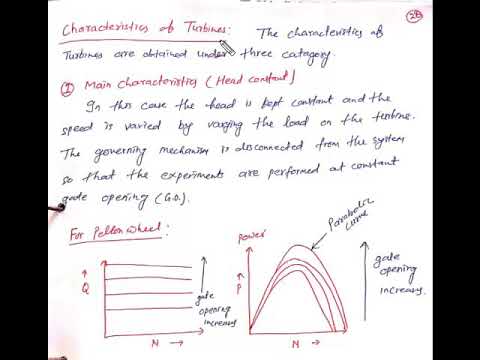 28
Characteristics of Turbines: The characteristics of
Turbines are obtained under three catagory.
① Main Characteristics (Head constant)
In this case the head is kept constant and the
speed is varied by varying the load on the turbine.
The governing mechanism is disconnected from the system
so that the experiments are performed at constant
gate opening (G.O.).
For Pelton wheel:
Q
N →
gate
opening
increases
Power
P
N →
Parabolic
curve
gate
opening
increases.